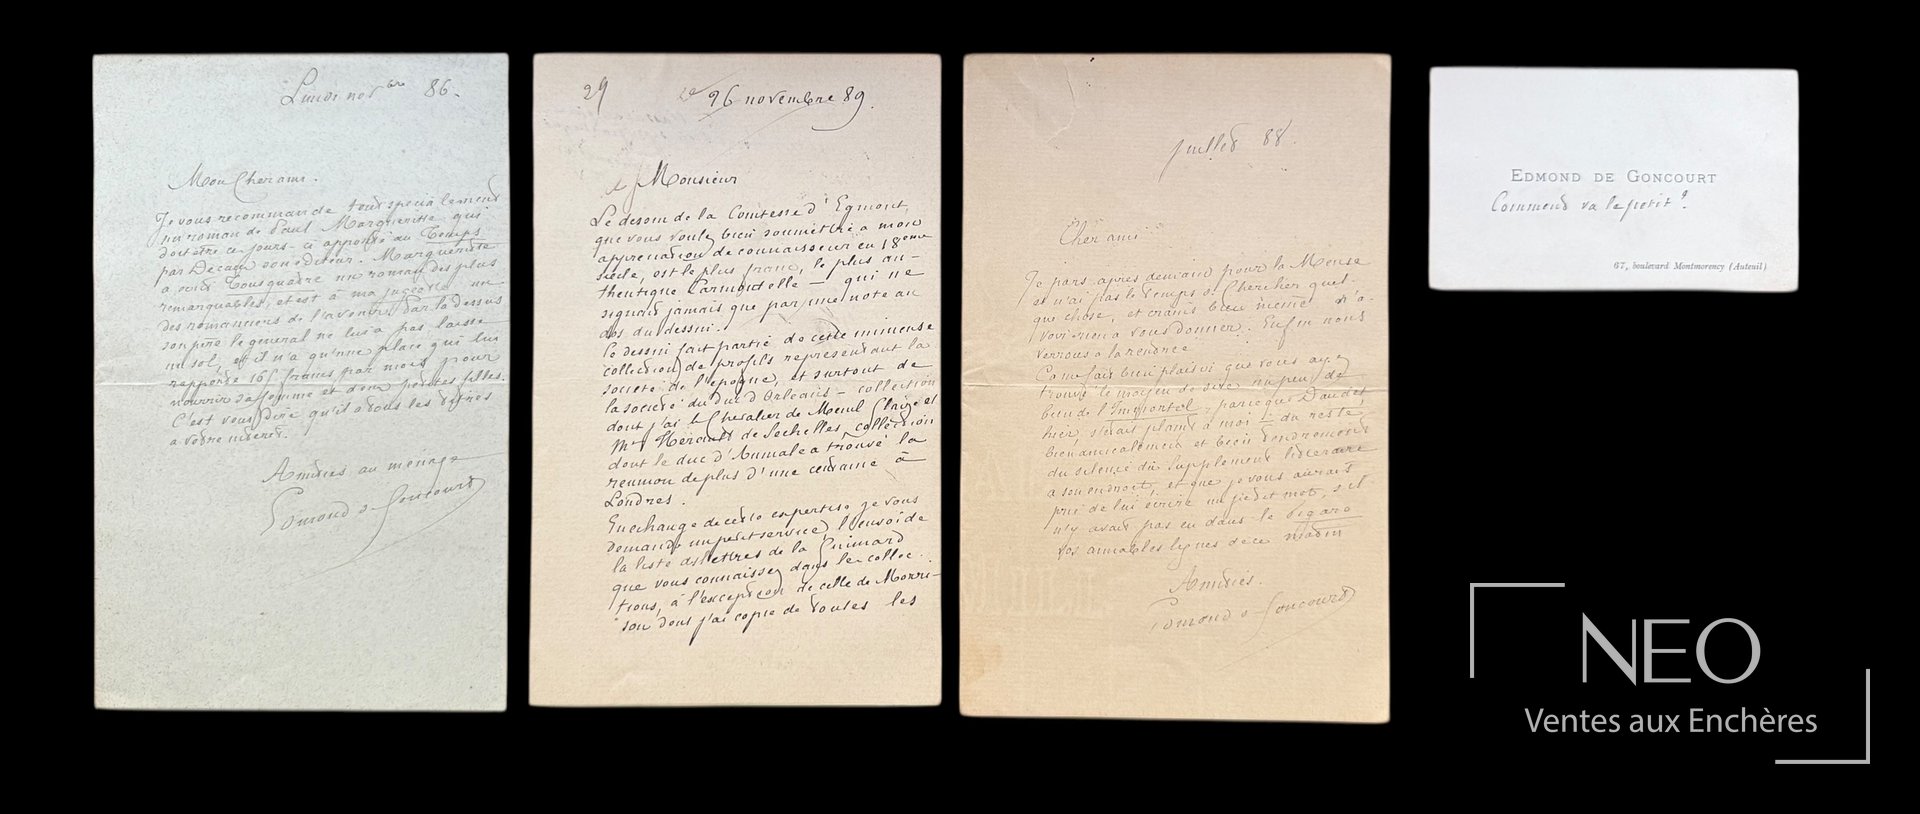 Lundi nov^bre 86.
Mon cher ami.
Je vous recommande tout spécialement
un roman de Paul Margueritte qui
doit être ces jours-ci apporté au Temps
par Decaux son éditeur. Margueritte
a écrit Tous quatre un roman des plus
remarquables, et est à ma jugeotte un
des romanciers de l'avenir. Par là dessus
son père le général ne lui a pas laissé
un sol, et il n'a qu'une place qui lui
rapporte 165 francs par mois pour
nourrir sa femme et deux petites filles.
C'est vous dire qu'il a tous les titres
a votre intérêt.
Amitiés au ménage
Edmond de Goncourt
29
26 novembre 89.
Monsieur
Le dessin de la Comtesse d'Egmont,
que vous voulez bien soumettre a mon
appreciation de connaisseur en 18eme
siècle, est le plus franc, le plus au-
thentique Carmontelle — qui ne
signait jamais que par une note au
dos du dessin.
Ce dessin fait partie de cette immense
collection de profils représentant la
société de l'époque, et surtout de
la société du duc d'Orléans — collection
dont j'ai le Chevalier de Menil Glaize et
Mr Hérault de Sechelles, collection
dont le duc d'Aumale a trouvé la
reunion de plus d'une centaine à
Londres.
En echange de cette expertise je vous
demande un petit service, l'envoi de
la liste des lettres de la Guimard
que vous connaissez dans les collec-
tions, à l'exception de celle de Morri-
son dont j'ai copie de toutes les
Juillet 88.
Cher ami
Je pars après demain pour la Meuse
et n'ai pas le temps de chercher quel-
que chose, et crains bien même d'a-
voir rien a vous donner. Enfin nous
verrons a la rentrée
Ca me fait bien plaisir que vous ayez
trouvé le moyen de dire un peu de
bien de l'Immortel, parce que Daudet
hier, s'était plaint a moi — du reste,
bien amicalement et bien tendrement
du silence du Supplement litteraire
a son endroit, et que je vous aurais
prié de lui écrire un petit mot, s'il
n'y avait pas eu dans le Figaro
vos aimables lignes de ce matin
Amitiés.
Edmond de Goncourt
EDMOND DE GONCOURT
Comment va le petit?
67, boulevard Montmorency (Auteuil)
NEO
Ventes aux Enchères